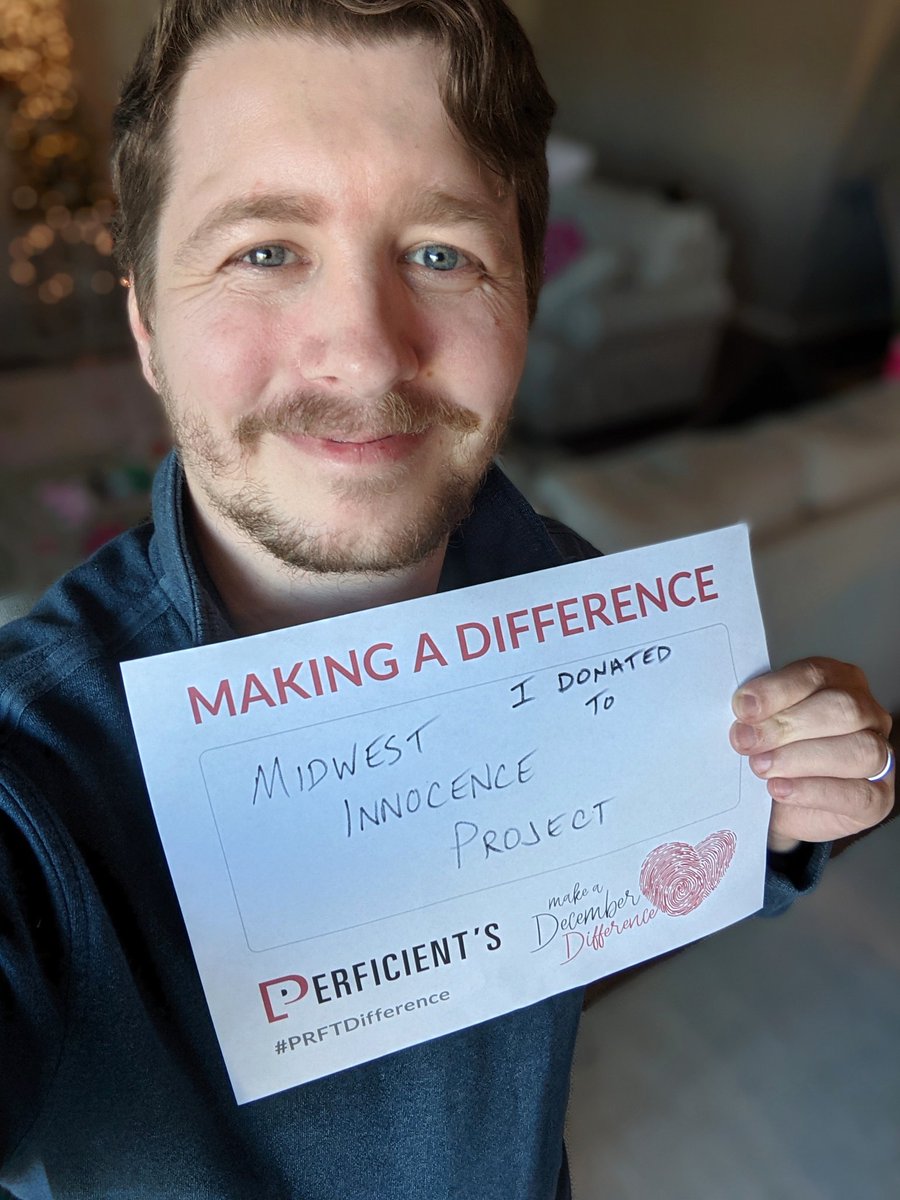 MAKING A DIFFERENCE
I DONATED
TO
MIDWEST
INNOCENCE
PROJECT
make a
December
Difference
PERFICIENT'S
#PRFTDifference